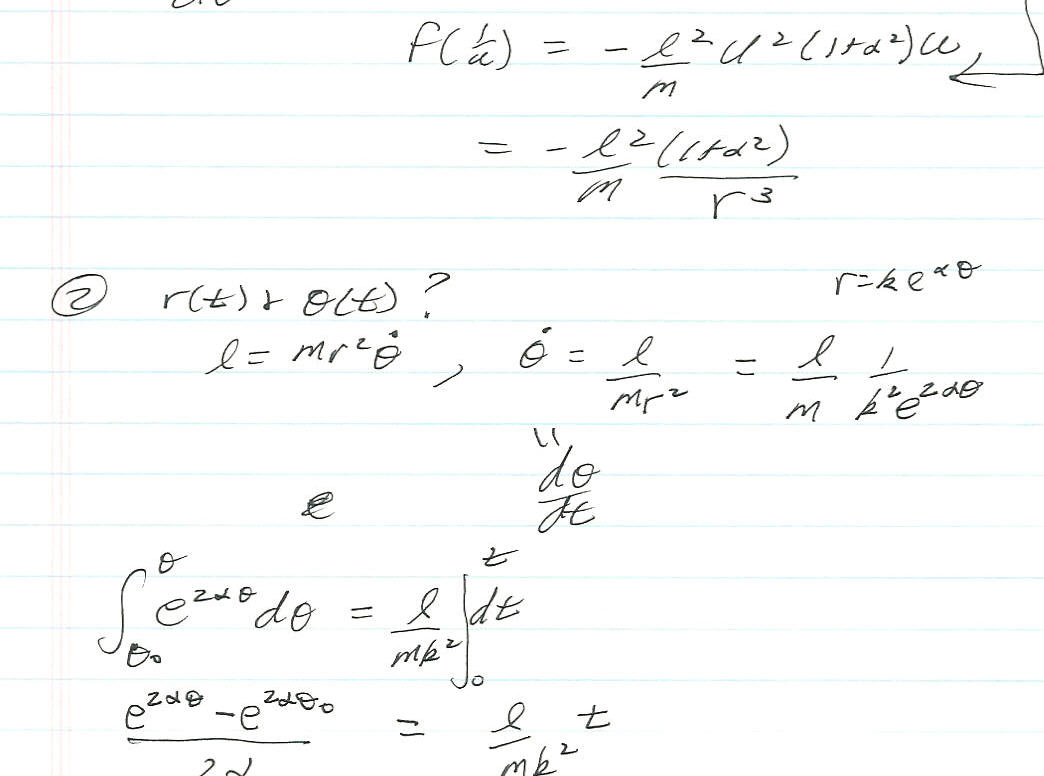 f(1/u) = - l²/m u²(1+α²)u,
= - l²/m (1+α²)/r³
② r(t) & θ(t) ? r=ke^αθ
l = mr²θ̇ , θ̇ = l/mr² = l/m 1/k²e^2αθ
"
dθ/dt
∫_θ₀^θ e^2αθ dθ = l/mk² ∫_0^t dt
(e^2αθ - e^2αθ₀)/2α = l/mk² t